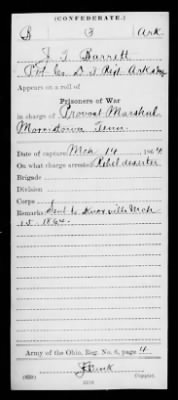 (CONFEDERATE.)
B 3 Ark
J. T. Barrett
Pvt Co. D 3 Regt Ark
Appears on a roll of
Prisoners of War
in charge of Provost Marshal
Morristown Tenn.
Date of capture Mch 14, 1864
On what charge arrested Rebel deserter
Brigade
Division
Corps
Remarks Sent to Knoxville Mch
15. 1864.
Army of the Ohio, Reg. No. 6, page 4
Copyist.